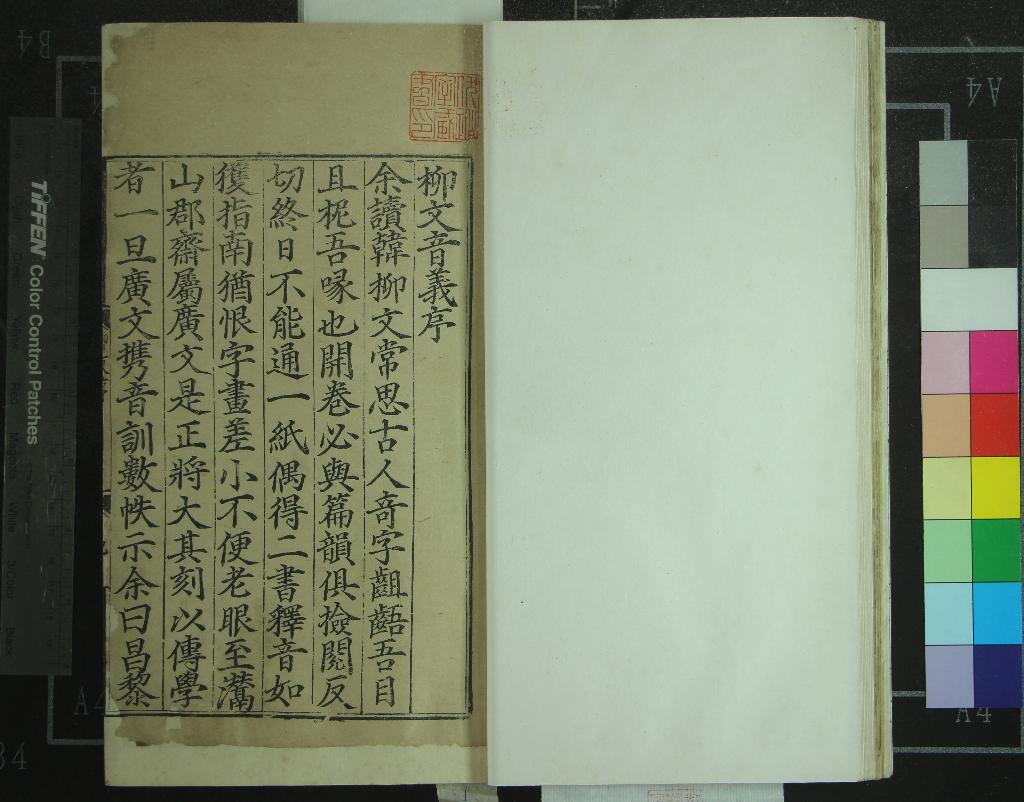 柳文音義序
余讀韓柳文常思古人奇字齟齬吾目
且梔吾喙也開卷必與篇韻俱撿閱反
切終日不能通一紙偶得二書釋音如
獲指南猶恨字畫差小不便老眼至灊
山郡齋屬廣文是正將大其刻以傳學
者一旦廣文携音訓數帙示余曰昌黎
TIFFEN Color Control Patches
B4
A4
A4
A4
B4